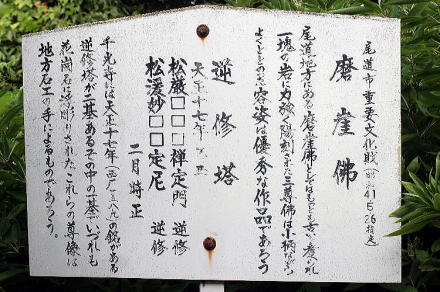 尾道市重要文化財（昭和41.5.26指定）
磨崖佛
尾道地方にある磨崖佛としてはもっとも古いと考えられ
一塊の岩に力強く陽刻された三尊佛は小柄ながら
よくととのった容姿は優秀な作品であろう
逆修塔
天正十七年
松厳□□□禅定門 逆修
松濱妙□□定尼 逆修
二月時正
千光寺には天正十七年（西厂一五八九）の銘がある
逆修塔が二基あるその中の一基でいづれも
花崗石に浮彫りされたこれらの尊像は
地方石工の手によるものであろう。